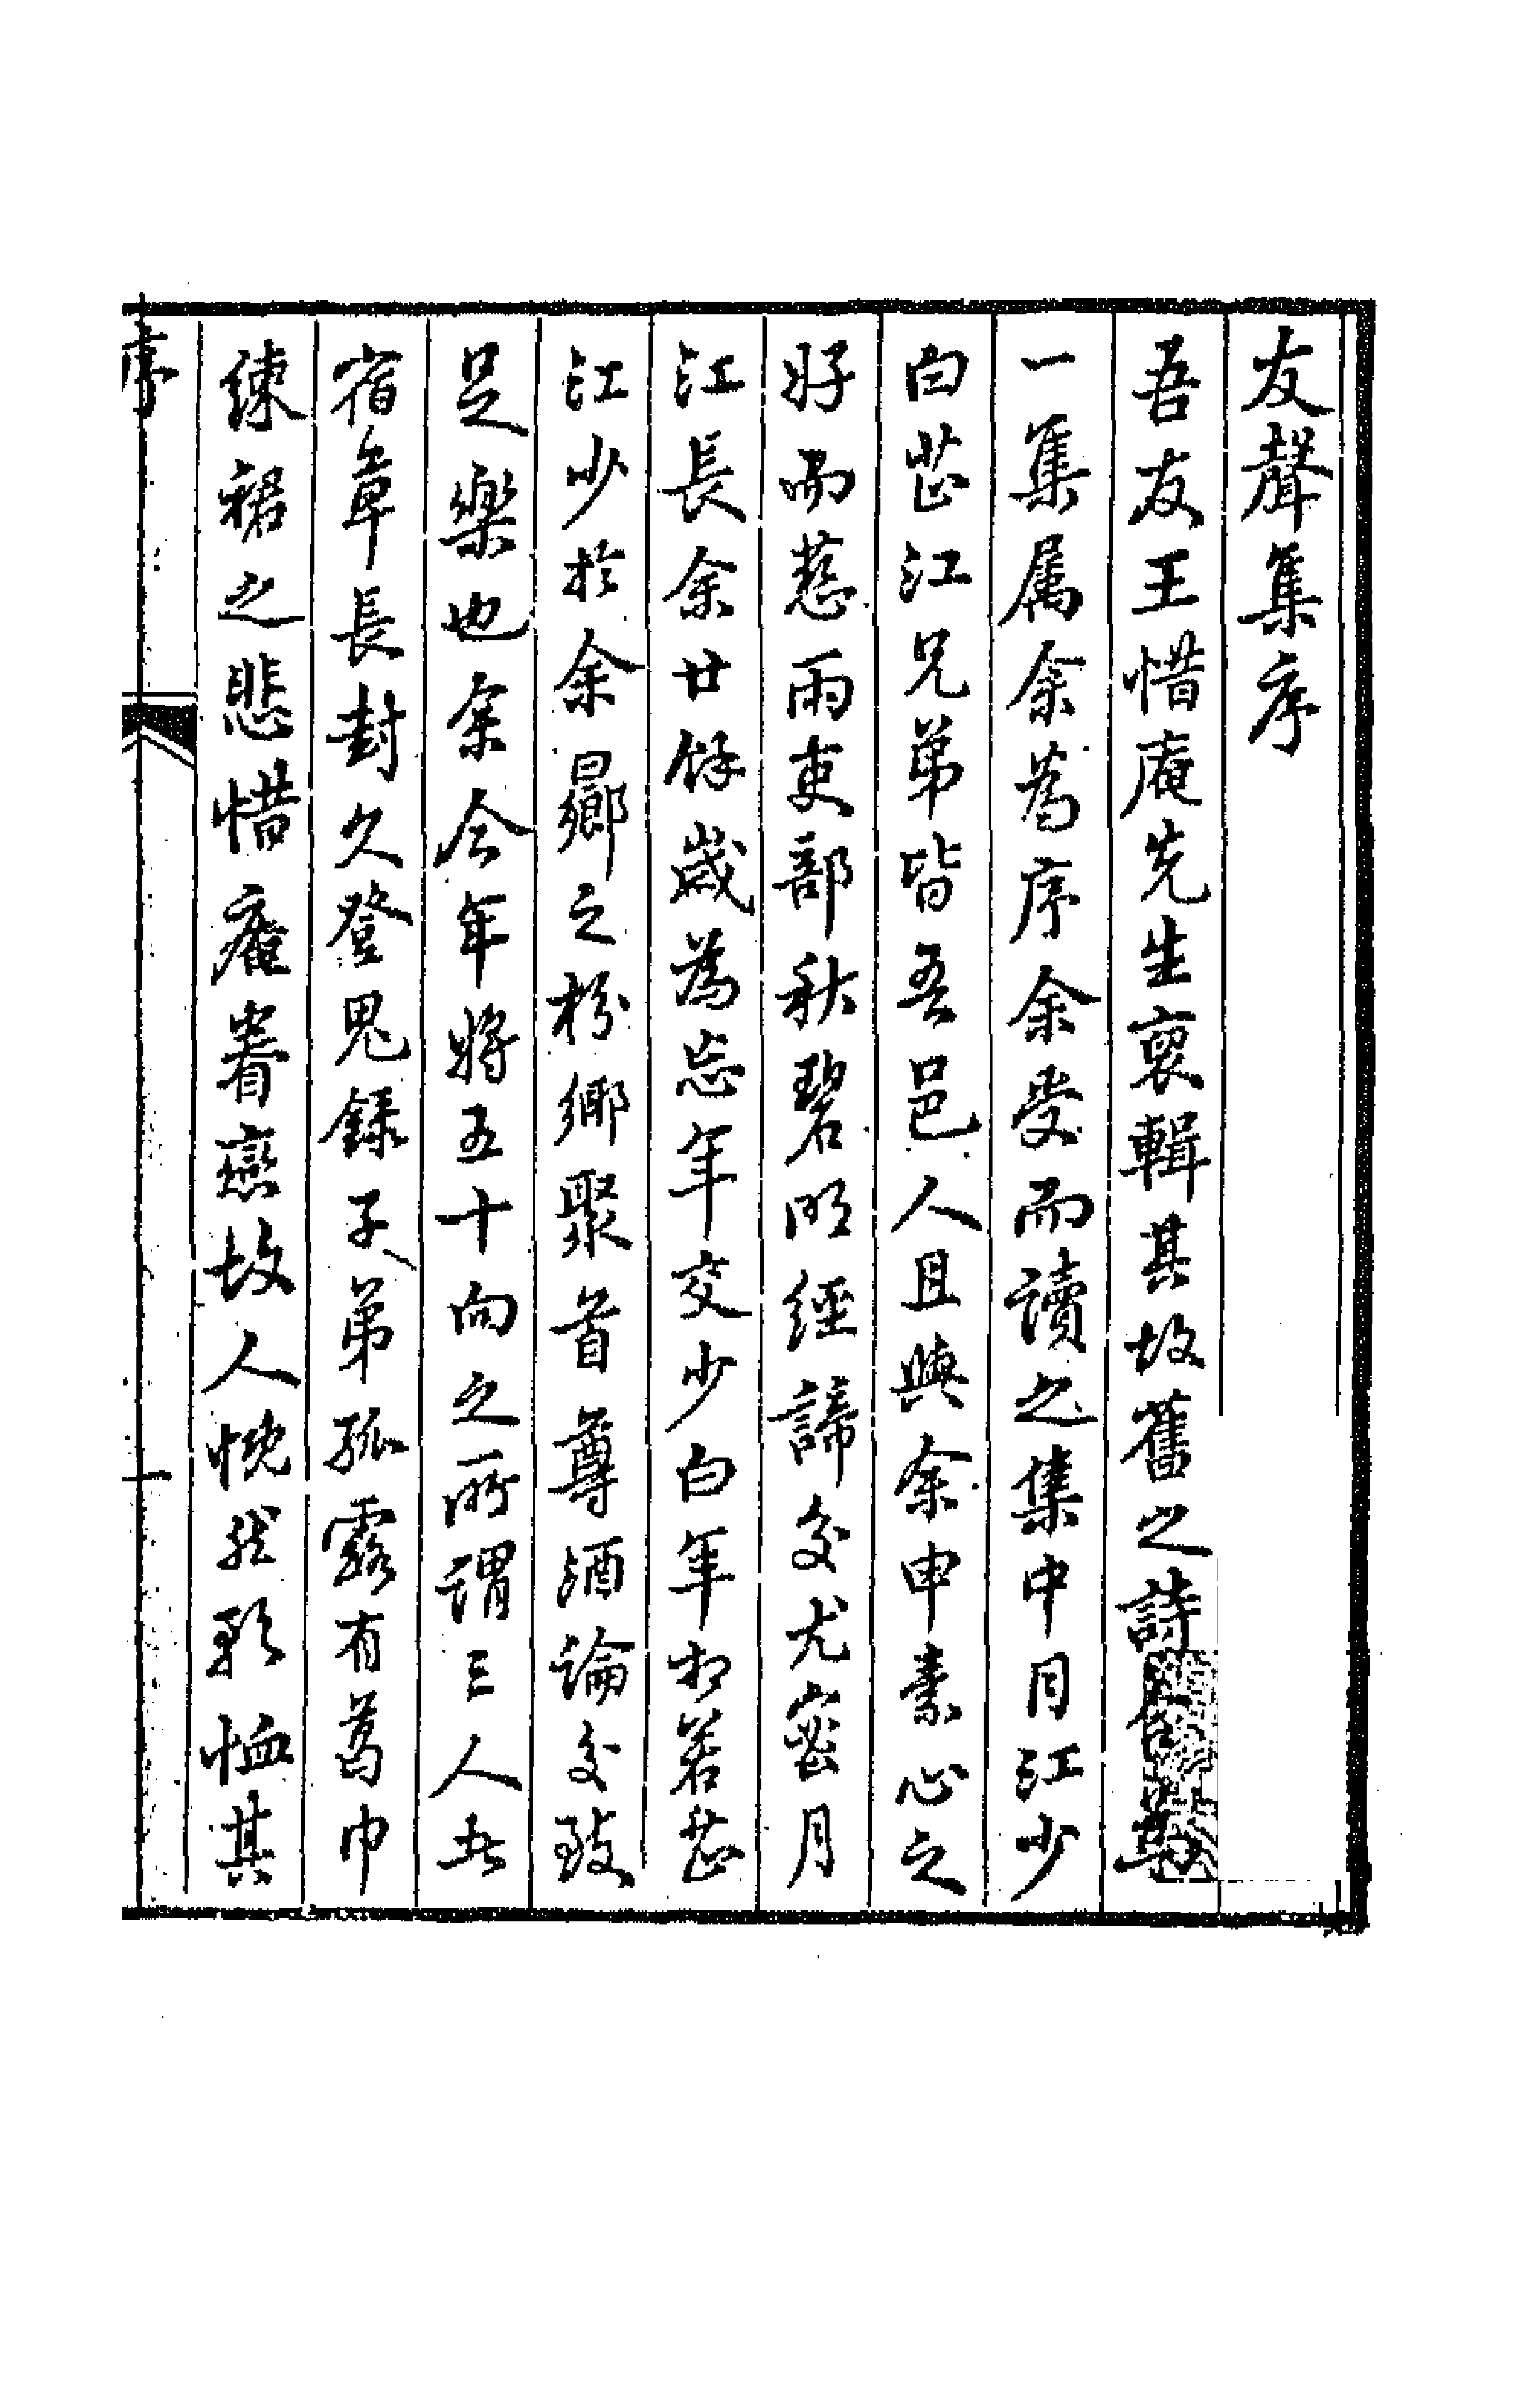 友聲集序
吾友王惜庵先生裒輯其故舊之詩
一集屬余為序余受而讀之集中月江少
白芷江兄弟皆吾邑人且與余申素心之
好而慈雨吏部秋碧明經諦交尤密月
江長余廿餘歲為忘年交少白年相若芷
江少於余曏之枌鄉聚首尊酒論交致
足樂也余今年將五十向之所謂三人者
宿草長封久登鬼錄子弟孤露有葛巾
練裙之悲惜庵眷戀故人怳然軫恤其
序
一